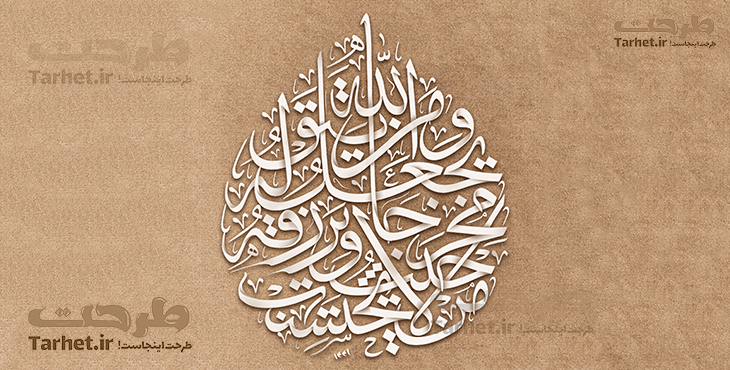 طرحت
Tarhet.ir طرحت اینجاست!
طرحت
Tarhet.ir طرحت اینجاست!
ومن يتق الله
يجعل له
مخرجا ويرزقه
من حيث لا يحتسب
طرحت
Tarhet.ir طرحت اینجاست!
طرحت
Tarhet.ir طرحت اینجاست!